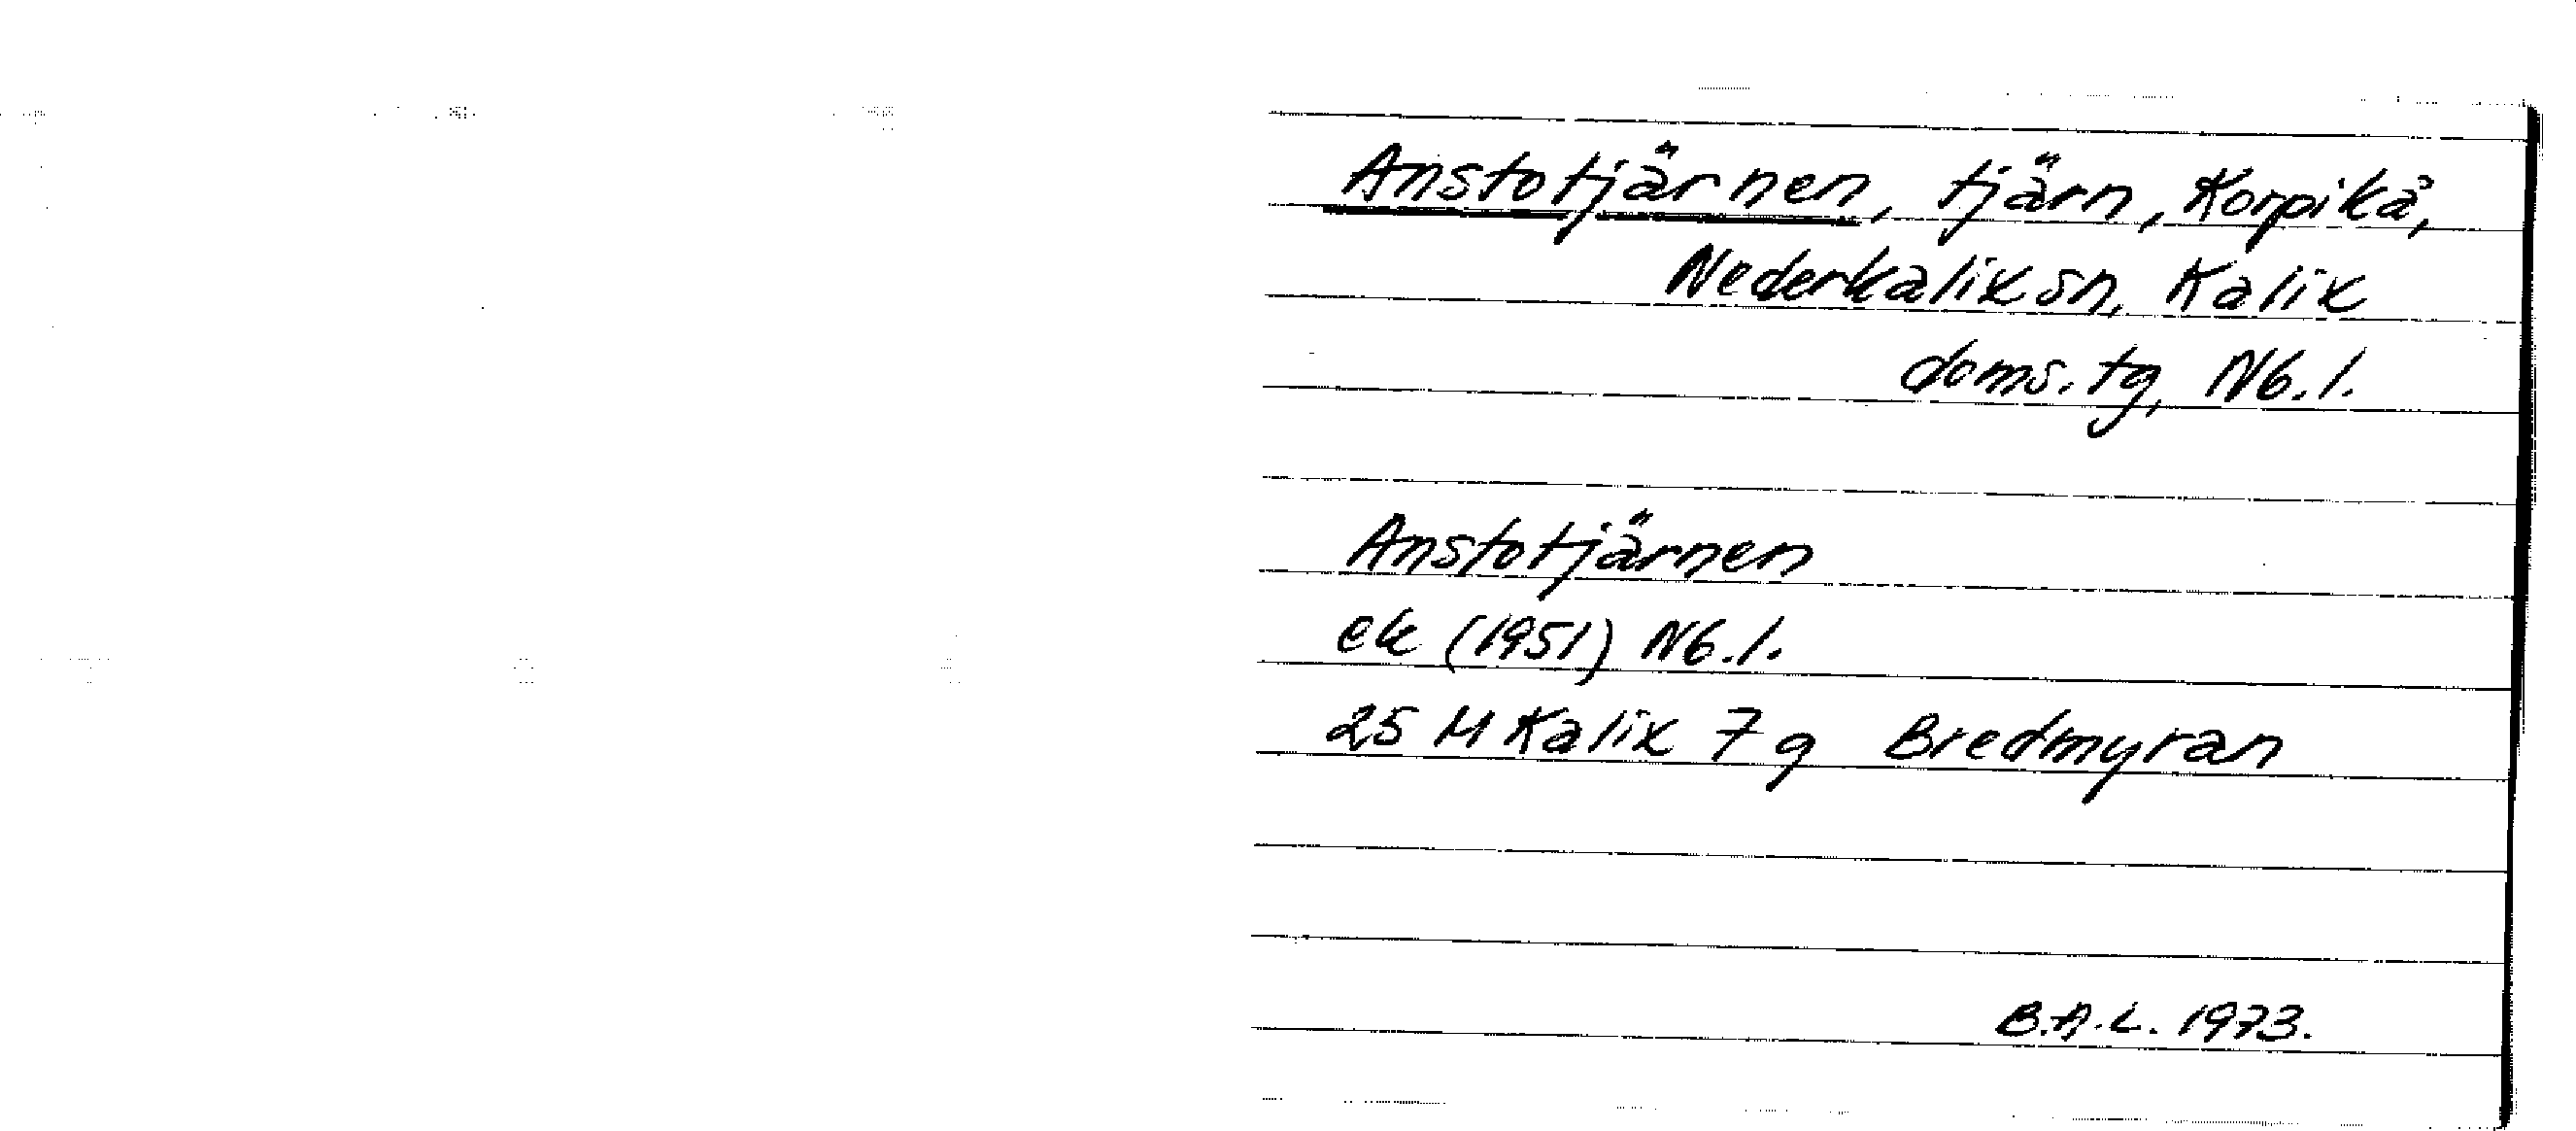 Anstotjärnen, tjärn, Korpikå,
Nederkalix sn, Kalix
doms. tg, Nb. l.
Anstotjärnen
ek (1951) Nb. l.
25 M Kalix 7 g Bredmyran
B.A.L. 1973.